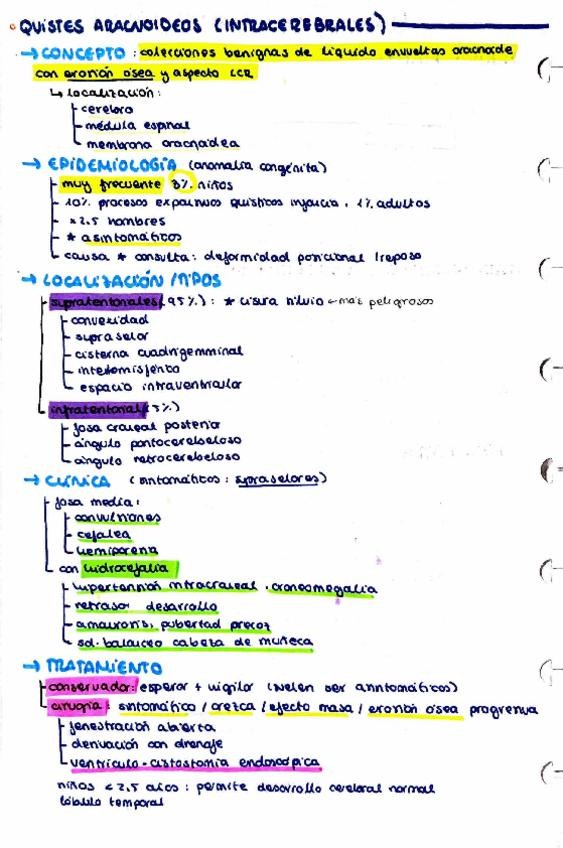 QUISTES ARACNOIDEOS (INTRACEREBRALES)
→ CONCEPTO: colecciones benignas de líquido envueltas aracnoide
con erosión ósea y aspecto LCR
↳ localización:
cerebro
médula espinal
membrana aracnoidea
→ EPIDEMIOLOGÍA (anomalía congénita)
muy frecuente 3% niños
10% procesos expansivos quísticos infancia, 1% adultos
x2.5 hombres
* asintomáticos
causa * consulta: deformidad posicional / reposo
→ LOCALIZACIÓN / TIPOS
supratentoriales (95%): * cisura silvio ← más peligrosos
convexidad
supraselar
cisterna cuadrigemminal
interhemisferio
espacio intraventricular
infratentorial (5%)
fosa craneal posterior
ángulo pontocerebeloso
ángulo retrocerebeloso
→ CLÍNICA (sintomáticos: supraselares)
fosa media:
convulsiones
cefalea
hemiparesia
con hidrocefalia
hipertensión intracraneal, craneomegalia
retraso desarrollo
amaurosis, pubertad precoz
sd. balanceo cabeza de muñeca
→ TRATAMIENTO
conservador: esperar + vigilar (suelen ser asintomáticos)
cirugía: sintomático / crezca / efecto masa / erosión ósea progresiva
fenestración abierta
derivación con drenaje
ventrículo-cistostomía endoscópica
niños < 2,5 años: permite desarrollo cerebral normal
lóbulo temporal